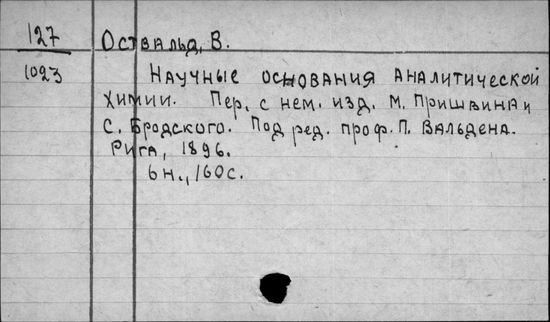 127
1023
Оствальд, В.
Научные основания аналитической
химии. Пер. с нем. изд. М. Пришвина и
С. Бродского. Под ред. проф. П. Вальдена.
Рига, 1896.
6н., 160с.